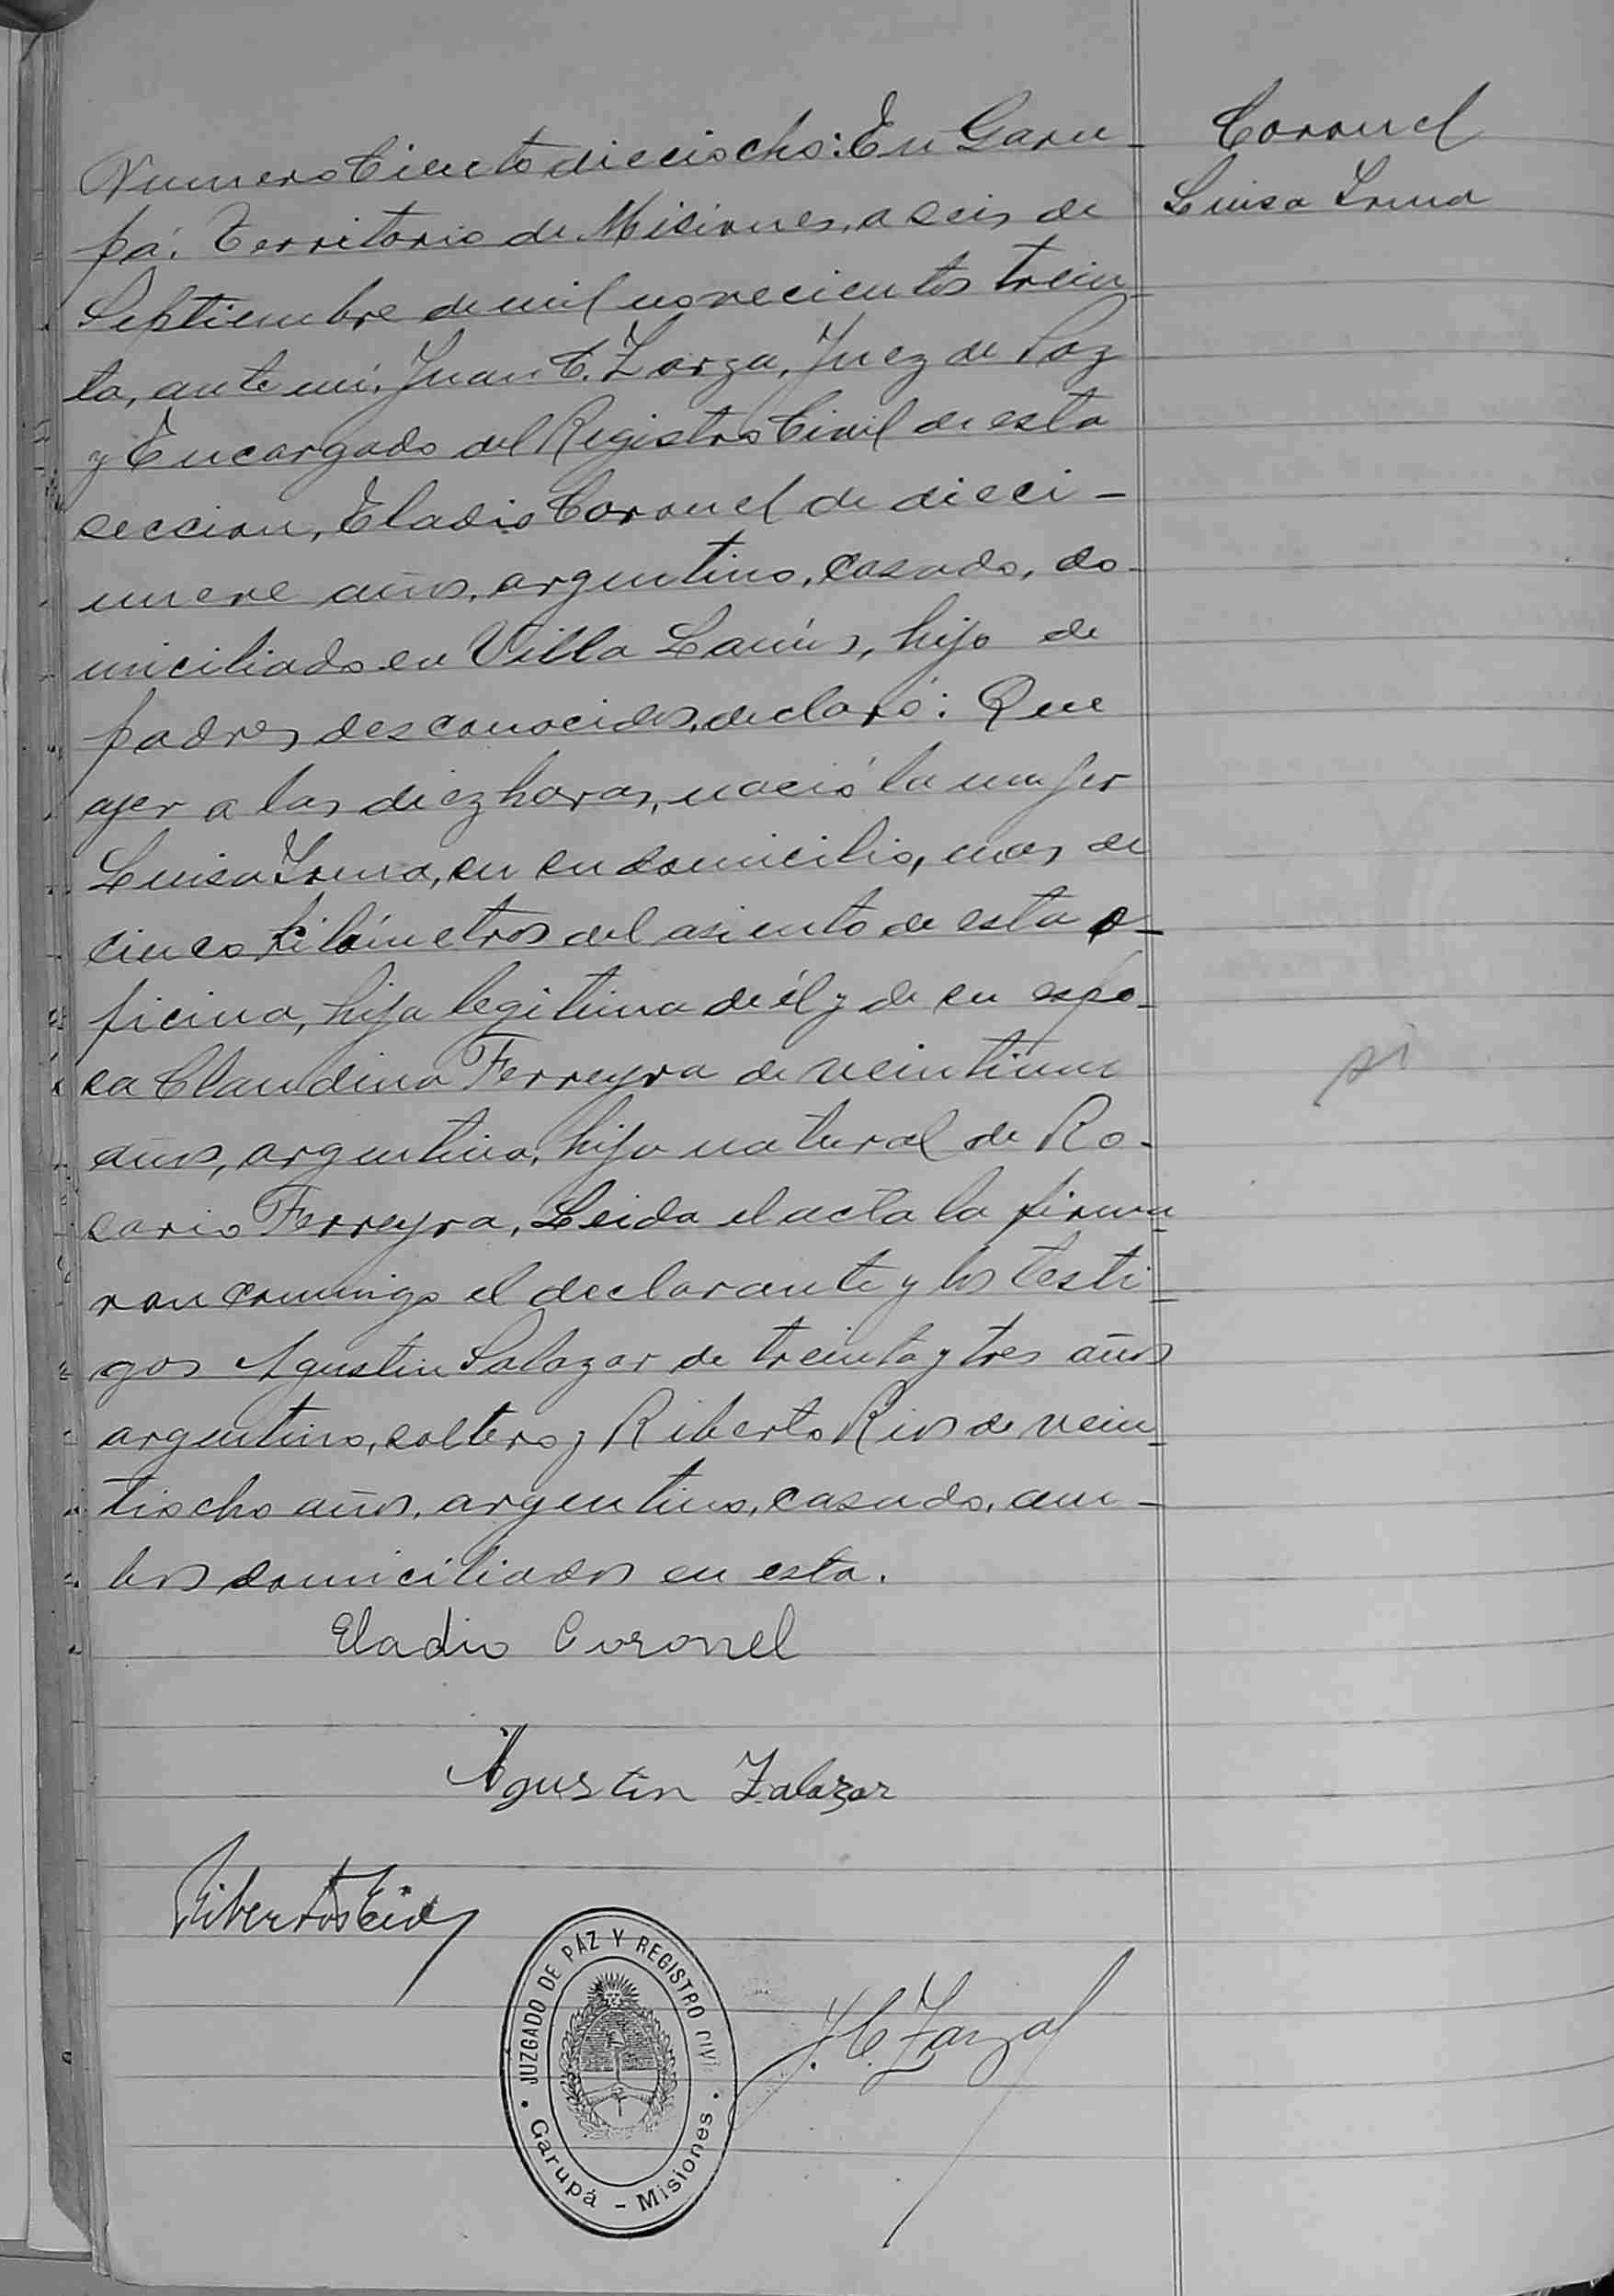 Coronel
Luisa Irma
Numero Ciento dieciocho: En Garu-
pá, Territorio de Misiones, a seis de
Septiembre de mil novecientos trein-
ta, ante mí, Juan C. Zarza, Juez de Paz
y Encargado del Registro Civil de esta
seccion, Eladio Coronel de dieci-
nueve años, argentino, casado, do-
miciliado en Villa Lanús, hijo de
padres desconocidos, declaró: Que
ayer a las diez horas, nació la mujer
Luisa Irma, en su domicilio, mas de
cinco kilómetros del asiento de esta o-
ficina, hija legitima de él y de su espo-
sa Claudina Ferreyra de veintiun
años, argentina, hija natural de Ro-
sario Ferreyra, Leida el acta la firma-
ron conmigo el declarante y los testi-
gos Agustin Salazar de treinta y tres años
argentino, soltero y Riberto Rios de vein-
tiocho años, argentino, casado, am-
bos domiciliados en esta.
Eladio Coronel
Agustin Zalazar
Riberto Rios
J. C. Zarza
JUZGADO DE PAZ Y REGISTRO CIVIL
Garupá - Misiones